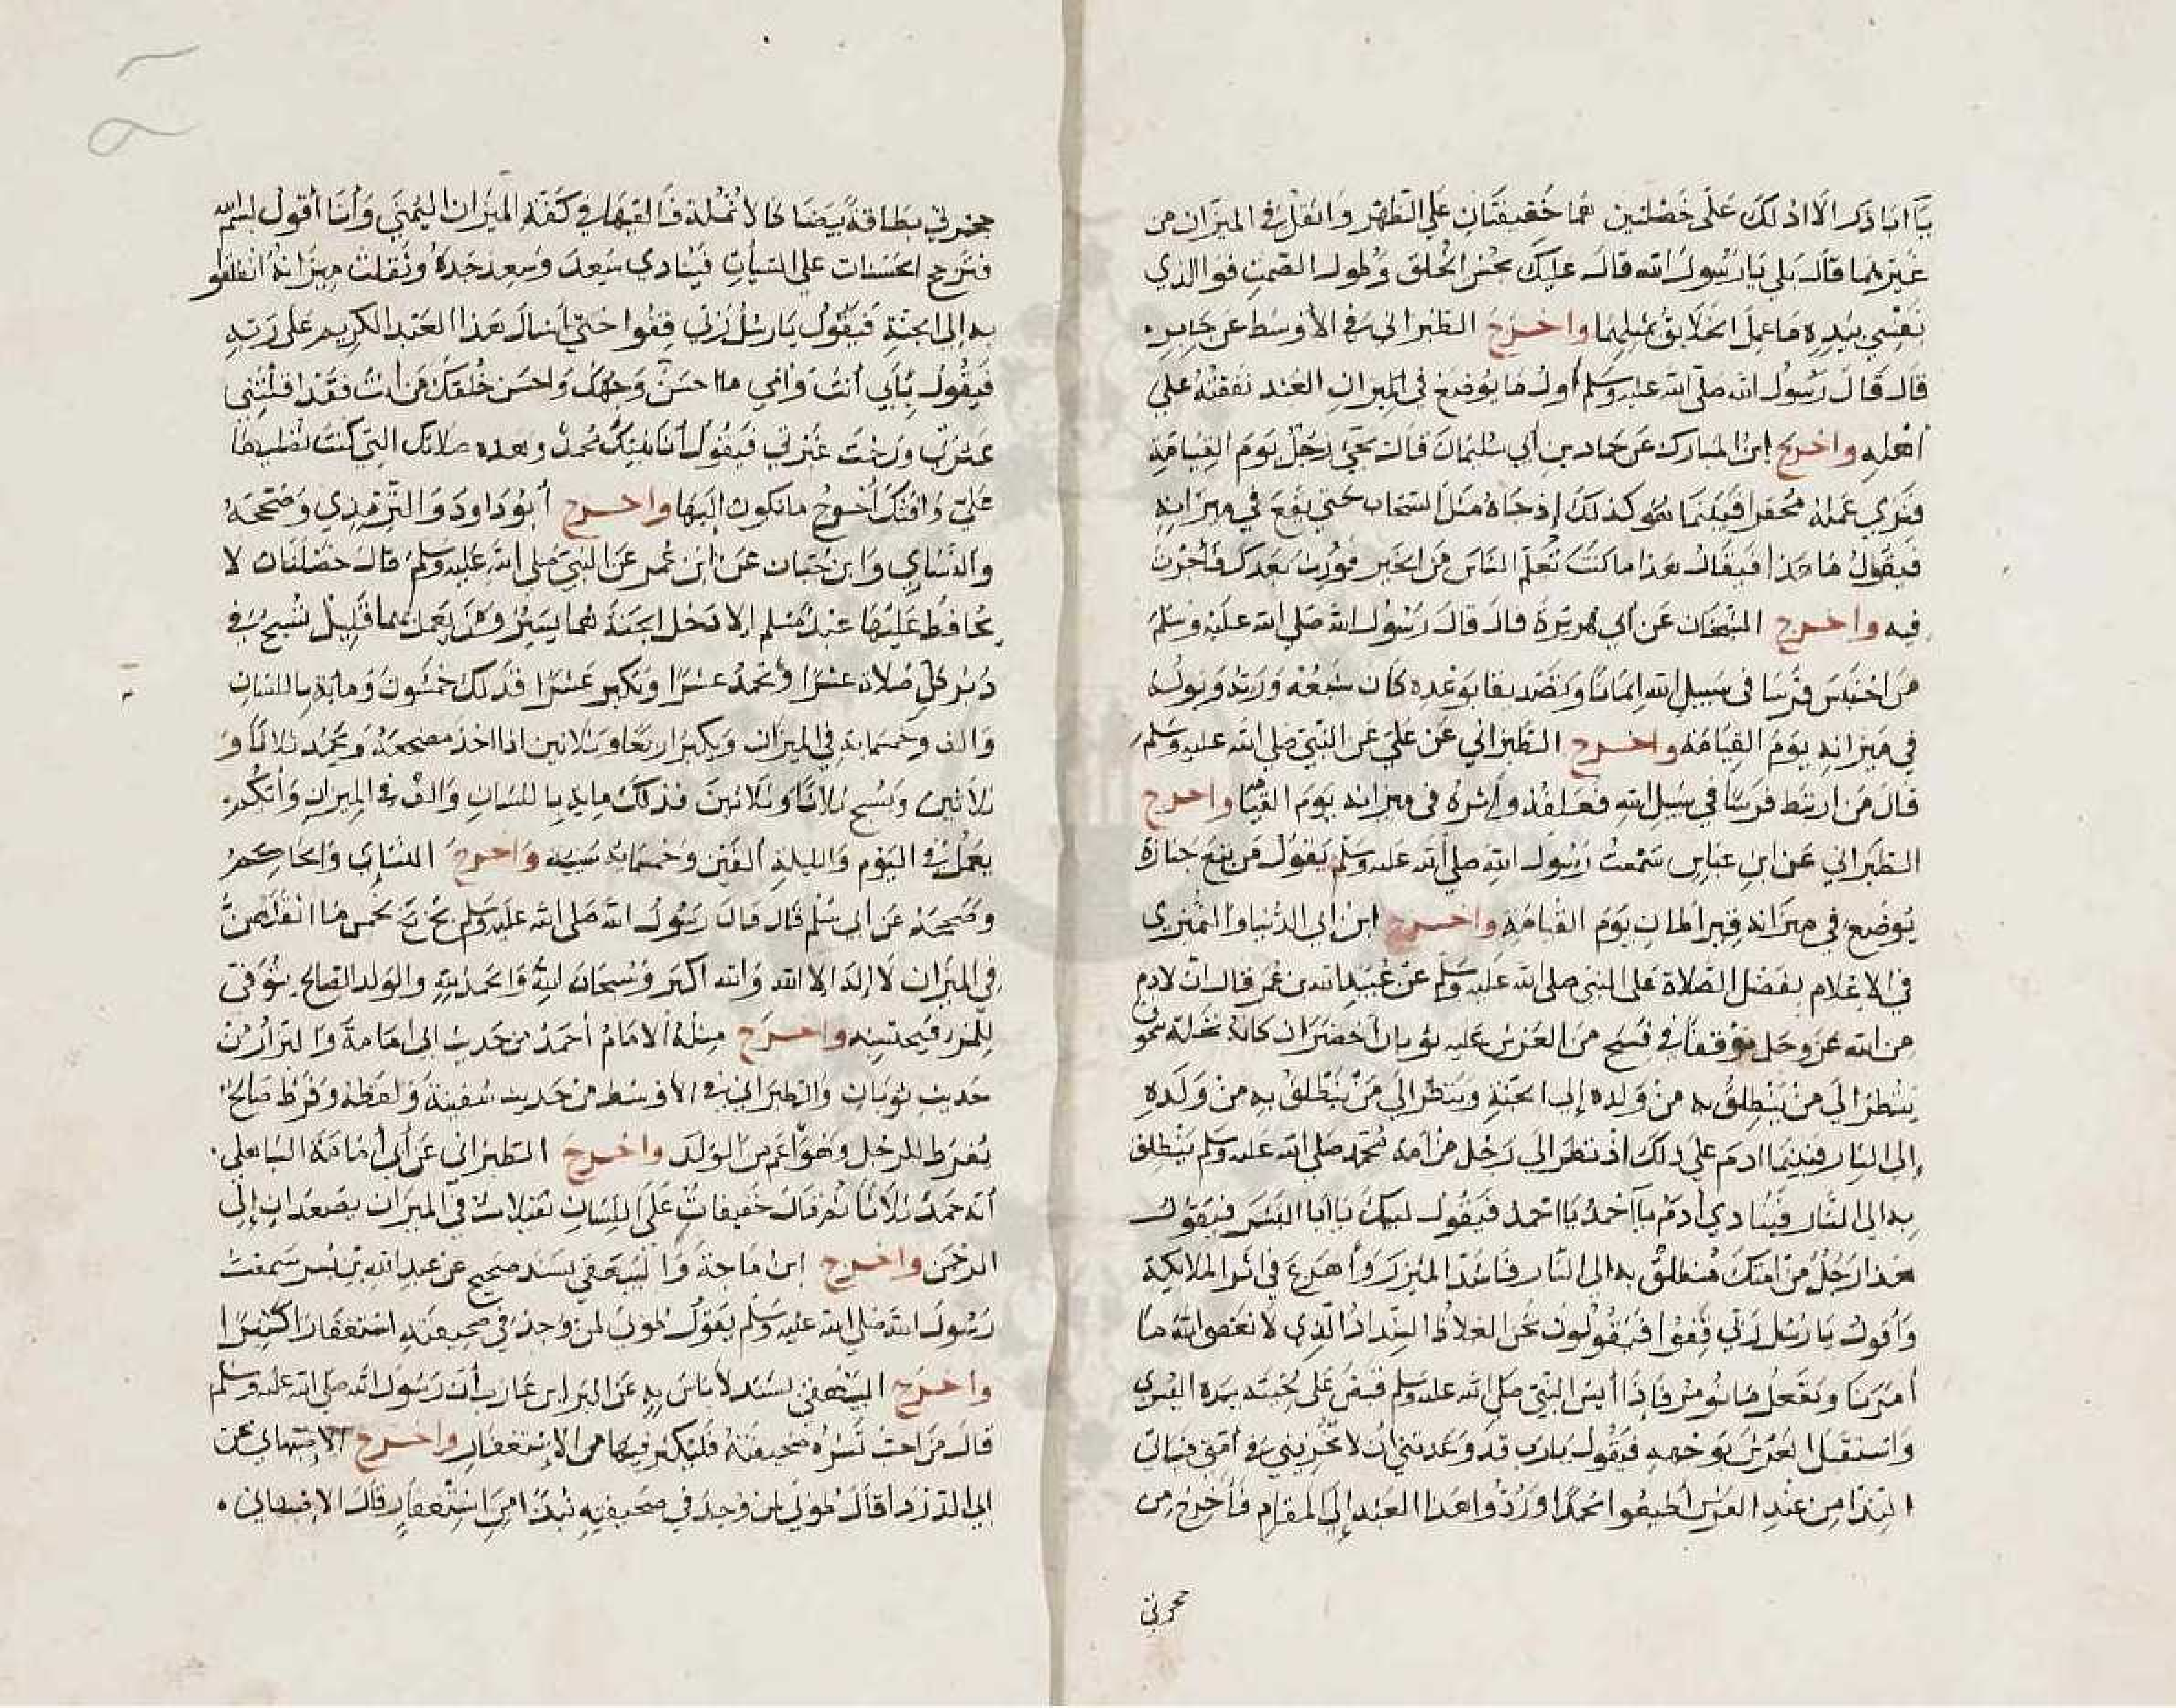 يا ابا ذر الا ادلك على خصلتين هما خفيفتان على الظهر واثقل في الميزان من
غيرهما قال بلى يا رسول الله قال عليك بحسن الخلق وطول الصمت فوالذي
نفسي بيده ما عمل الخلائق بمثلهما واخرج الطبراني في الأوسط عن جابر
قال قال رسول الله صلى الله عليه وسلم أول ما يوضع في الميزان العبد نفقته على
أهله واخرج ابن المبارك عن حماد بن أبي سليمان قال يجيء رجل يوم القيامة
فيري عمله محقرا فبينما هو كذلك إذ جاه مثل السحاب حتى يقع في ميزانه
فيقول ما هذا فيقال هذا ما كنت تعلم الناس من الخير فورث بعدك فأجرت
فيه واخرج الشيخان عن أبي هريرة قال قال رسول الله صلى الله عليه وسلم
من احتبس فرسا في سبيل الله ايمانا وتصديقا بوعده كان شبعه وريه وبوله
في ميزانه يوم القيامة واخرج الطبراني عن علي عن النبي صلى الله عليه وسلم
قال من ارتبط فرسا في سبيل الله فعلفه وأثره في ميزانه يوم القيامة واخرج
الطبراني عن ابن عباس سمعت رسول الله صلى الله عليه وسلم يقول من تبع جنازة
يوضع في ميزانه قيراطان يوم القيامة واخرج ابن أبي الدنيا والنميري
في الاعلام بفضل الصلاة على النبي صلى الله عليه وسلم عن عبد الله بن عمر قال ان لادم
من الله عز وجل موقفا في فسح من العرش عليه ثوبان أخضران كانه نخلة سحوق
ينظر الى من ينطلق به من ولده إلى الجنة وينظر الى من ينطلق به من ولده
إلى النار فبينما ادم على ذلك اذ نظر الى رجل من أمة محمد صلى الله عليه وسلم ينطلق
به الى النار فينادي أدم يا أحمد يا احمد فيقول لبيك يا أبا البشر فيقول
هذا رجل من امتك منطلق به الى النار فاشد الميزر وأهرع في اثر الملائكة
وأقول يا رسل ربي قفوا فيقولون نحن الغلاظ الشداد الذي لا نعصى الله ما
أمرنا ونفعل ما نومر فإذا أيس النبي صلى الله عليه وسلم قبض على لحيته بيده اليسرى
واستقبل العرش بوجهه فيقول يا رب قد وعدتني ان لا تخزيني في أمتي فياتي
الندا من عند العرش أطيعوا محمدا وردوا هذا العبد إلى المقام فأخرج من
حجزتي
حجزتي بطاقة بيضا كالأنملة فالقيها في كفة الميزان اليمنى وأنا أقول بسم الله
فترجح الحسنات على السيأت فينادي سعد وسعد جده وثقلت ميزانه انطلقوا
به إلى الجنة فيقول يا رسل ربي قفوا حتى أسال هذا العبد الكريم على ربه
فيقول بأبي أنت وأمي ما احسن وجهك واحسن خلقك من أنت فقد اقلتني
عثرتي ورحمت عبرتي فيقول أنا نبيك محمد وهذه صلاتك التي كنت تصليها
علي وافتك أحوج ما تكون إليها واخرج أبو داود والترمذي وصححه
والنساي وابن حبان عن ابن عمر عن النبي صلى الله عليه وسلم قال خصلتان لا
يحافظ عليهما عبد مسلم إلا دخل الجنة هما يسير ومن يعمل بهما قليل تسبح في
دبر كل صلاة عشرا وتحمد عشرا وتكبر عشرا فذلك خمسون وماية باللسان
والف وخمسماية في الميزان ويكبر اربعا وثلاثين اذا اخذ مضجعه ويحمد ثلاثا و
ثلاثين ويسبح ثلاثا وثلاثين فذلك ماية باللسان والف في الميزان وأيكم
يعمل في اليوم والليلة ألفين وخمسماية سيئة واخرج النساي والحاكم
وصححه عن ابي سلم قال قال رسول الله صلى الله عليه وسلم بخ بخ لخمس ما اثقلهن
في الميزان لا إله الا الله والله اكبر وسبحان الله والحمد لله والولد الصالح يتوفى
للمرء فيحتسبه واخرج مثله الامام أحمد من حديث ابى امامة والبزار من
حديث ثوبان والطبراني في الأوسط من حديث سفينة ولفظه وفرط صالح
يفرط للرجل وهو أعم من الولد واخرج الطبراني عن أبي أمامة الباهلي
أنه حمد ثلاثا ثم قال خفيفات على اللسان ثقيلات في الميزان يصعدان إلى
الرحمن واخرج ابن ماجة والبيهقي بسند صحيح عن عبد الله بن بسر سمعت
رسول الله صلى الله عليه وسلم يقول طوبى لمن وجد في صحيفته استغفارا كثيرا
واخرج البيهقي بسند لا باس به عن البراء بن عازب أن رسول الله صلى الله عليه وسلم
قال من احب تسره صحيفته فليكثر فيها من الاستغفار واخرج الاصبهاني عن
ابي الدرداء قال طوبى لمن وجد في صحيفته نبذا من استغفار قال الاصبهاني